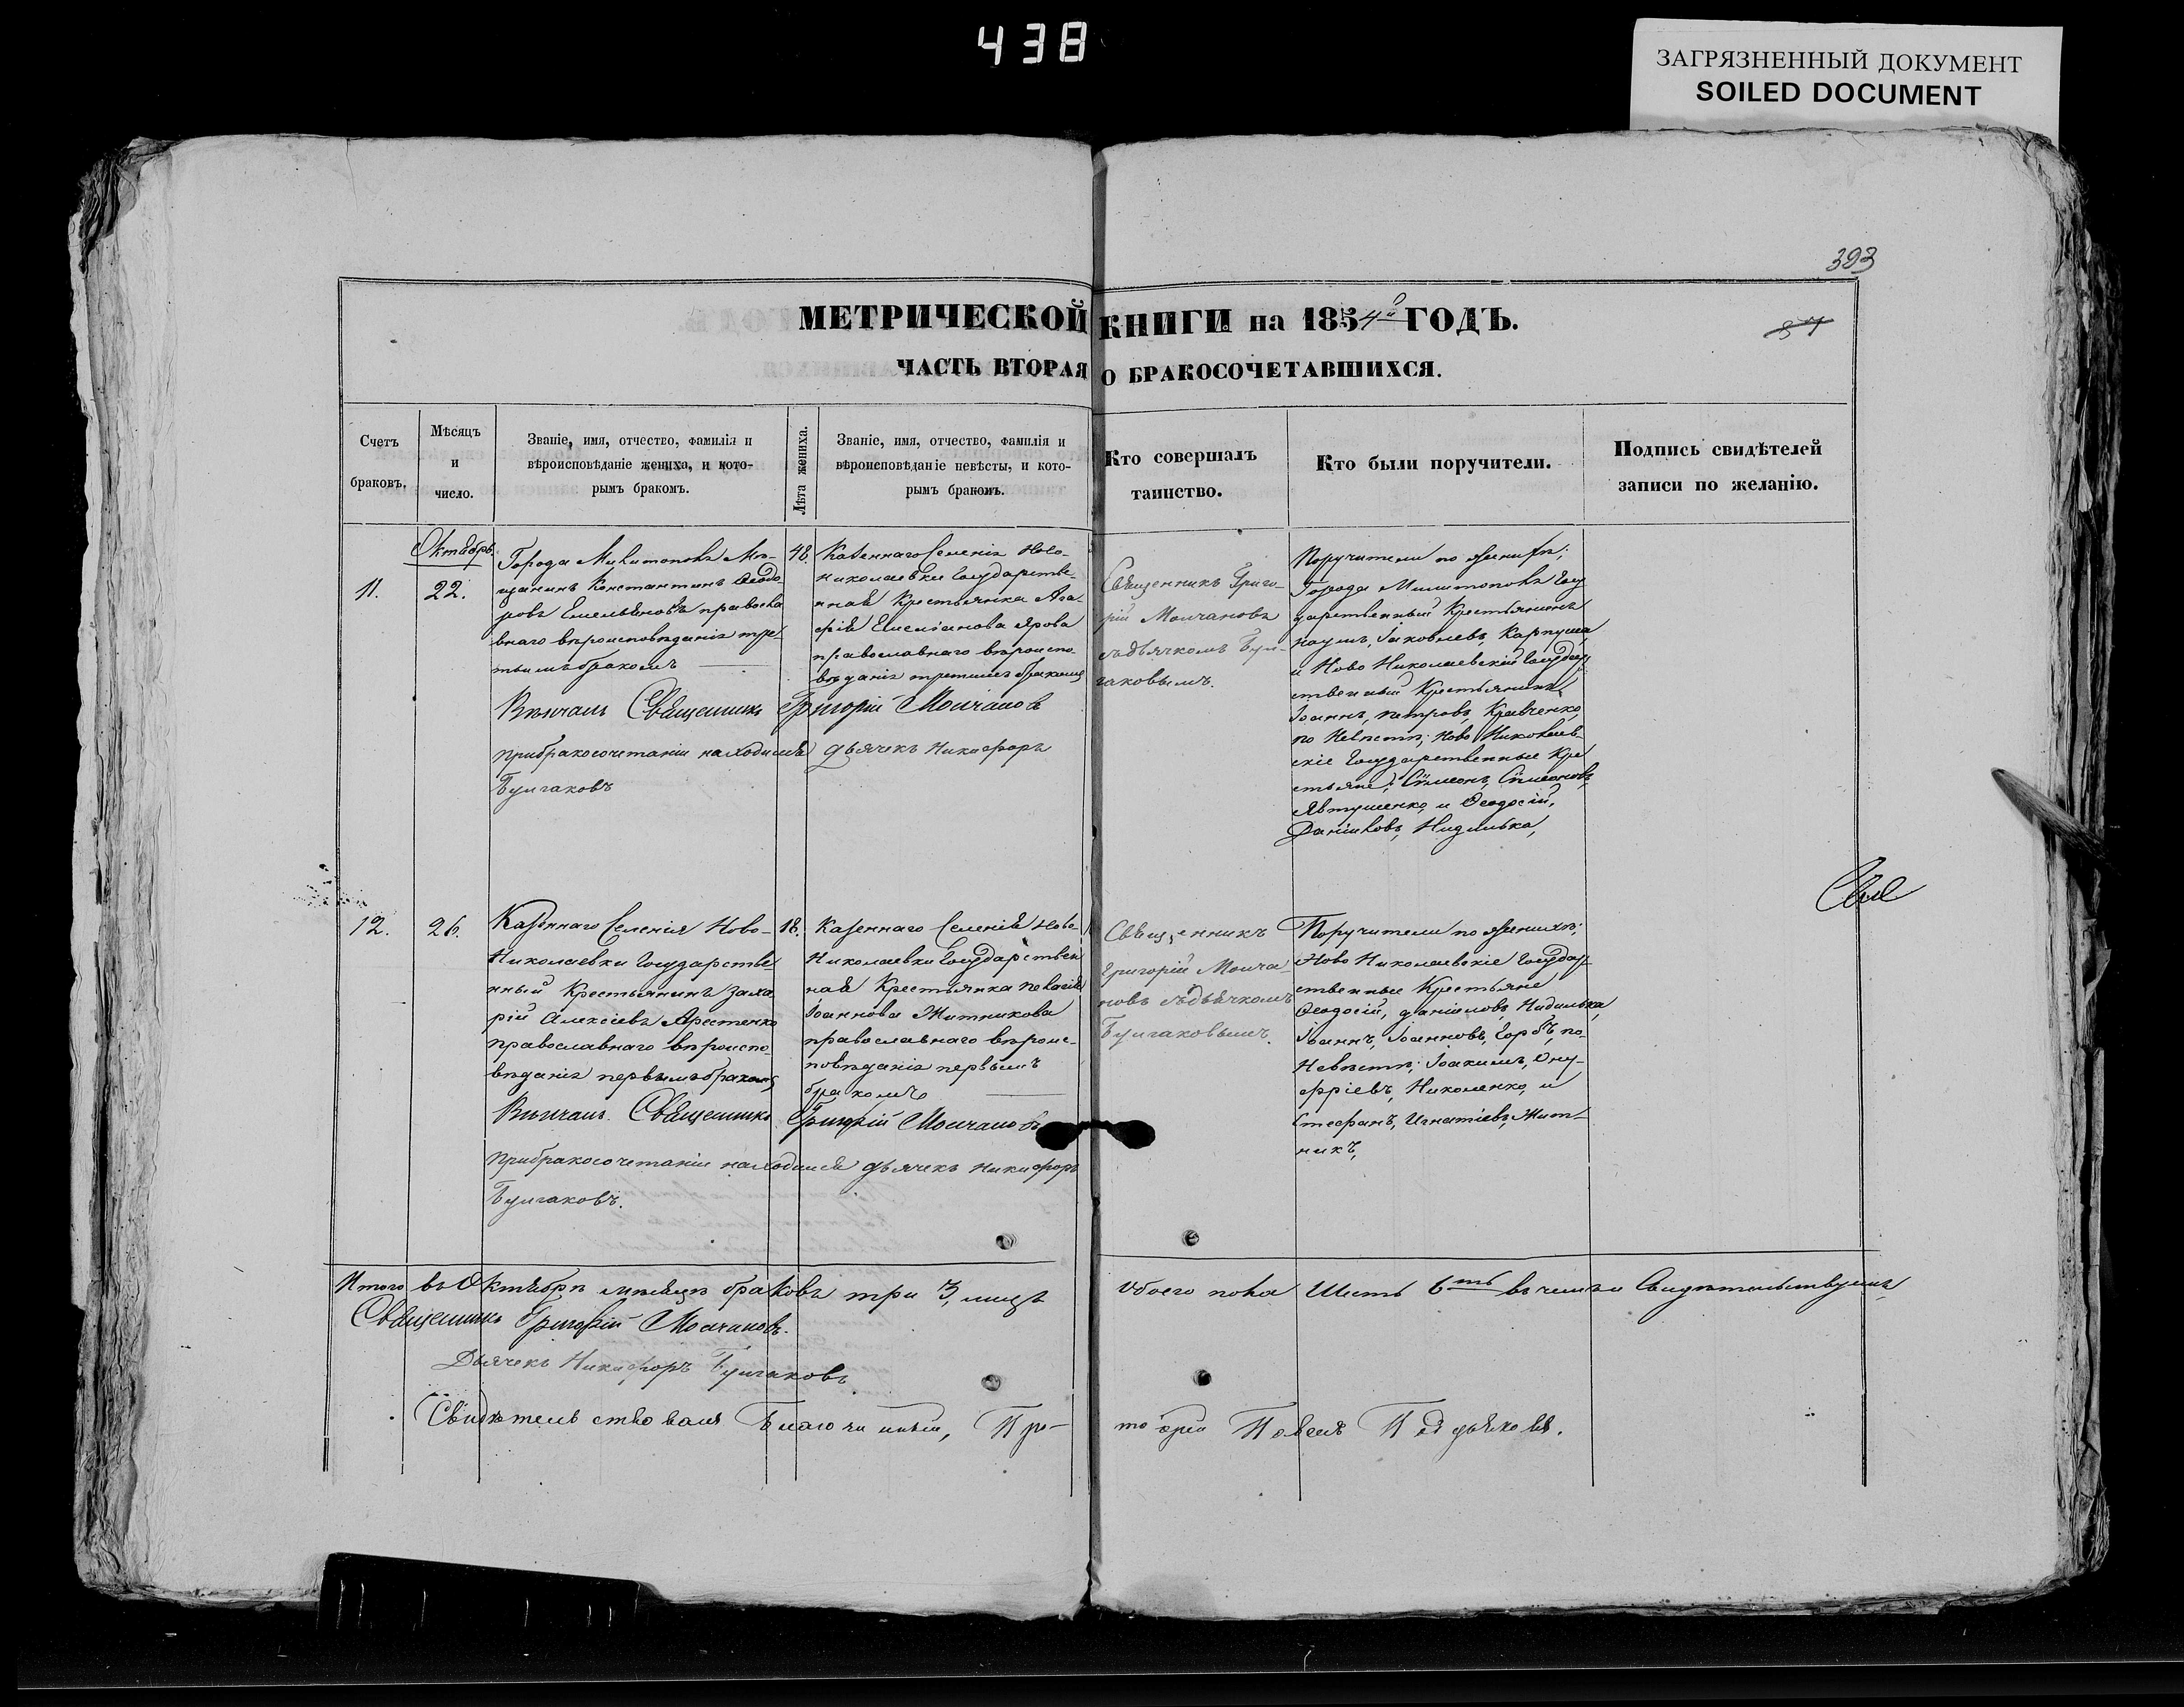 438
ЗАГРЯЗНЕННЫЙ ДОКУМЕНТ
SOILED DOCUMENT
393
МЕТРИЧЕСКОЙ КНИГИ на 1854й ГОДЪ.
ЧАСТЬ ВТОРАЯ О БРАКОСОЧЕТАВШИХСЯ.
Счетъ
браковъ.
Мѣсяцъ
и
число.
Званіе, имя, отчество, фамилія и
вѣроисповѣданіе жениха, и кото-
рымъ бракомъ.
Лѣта жениха.
Званіе, имя, отчество, фамилія и
вѣроисповѣданіе невѣсты, и кото-
рымъ бракомъ.
Кто совершалъ
таинство.
Кто были поручители.
Подпись свидѣтелей
записи по желанію.
Октябрь
11.
22.
Города Милитополя Мѣ-
щанинъ Константинъ Ѳеодо
ровъ Емельяновъ правосла
внаго вѣроисповѣданія тре
тьимъ бракомъ
48.
Казеннаго Селенія Ново-
николаевки Государстве-
нная Крестьянка Ага-
фія Емеліанова Ярова
православнаго вѣроиспо-
вѣданія третьимъ бракомъ
Священникъ Григо-
рій Молчановъ
съ дьячкомъ Бул-
гаковымъ.
Поручители по женихѣ;
Города Милитополя Госу
дарственный Крестьянинъ
Наумъ, Іаковлевъ, Карпуша
и Ново Николаевскій Государ
ственный Крестьянинъ
Іоаннъ, Петровъ, Кравченко,
по Невѣстѣ; Ново Николаев-
скіе Государственные Кре
стьяне; Сѵмеонъ, Сѵмеоновъ,
Явтушенко, и Ѳеодосій,
Даніиловъ, Нидилька,
Вѣнчалъ Священникъ Григорій Молчановъ
при бракосочетаніи находился дьячекъ Никифоръ
Булгаковъ
12.
26.
Казеннаго Селенія Ново-
Николаевки Государстве
нный Крестьянинъ Заха
рій Алексіевъ Арестенко
православнаго вѣроиспо-
вѣданія первымъ бракомъ
18.
Казеннаго Селенія Ново-
Николаевки Государствен
ная Крестьянка Пелагія
Іоаннова Житникова
православнаго вѣроис-
повѣданія первымъ
бракомъ
Священникъ
Григорій Молча-
новъ съ дьячкомъ
Булгаковымъ.
Поручители по женихѣ;
Ново Николаевскіе Государ-
ственные Крестьяне
Ѳеодосій, Даніиловъ, Нидилька,
Іоаннъ, Іоанновъ, Горбъ, по-
Невѣстѣ; Іоакимъ, Ону-
фріевъ, Николенко, и
Стефанъ, Игнатіевъ, Жит-
никъ,
Вѣнчалъ Священникъ Григорій Молчановъ
При бракосочетаніи находился дьячекъ Никифоръ
Булгаковъ.
Итого въ Октябрѣ мѣсяцѣ браковъ три 3, лицъ обоего пола Шесть 6ть въ чемъ и Свидѣтельствуемъ
Священникъ Григорій Молчановъ.
Дьячекъ Никифоръ Булгаковъ
Свидѣтельствовалъ Благочинный, Про-